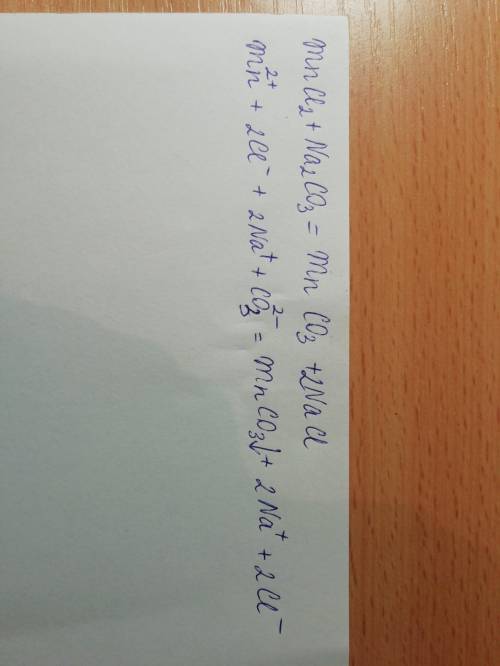 MnCl₂ + Na₂CO₃ = MnCO₃ + 2NaCl
Mn²⁺ + 2Cl⁻ + 2Na⁺ + CO₃²⁻ = MnCO₃↓ + 2Na⁺ + 2Cl⁻